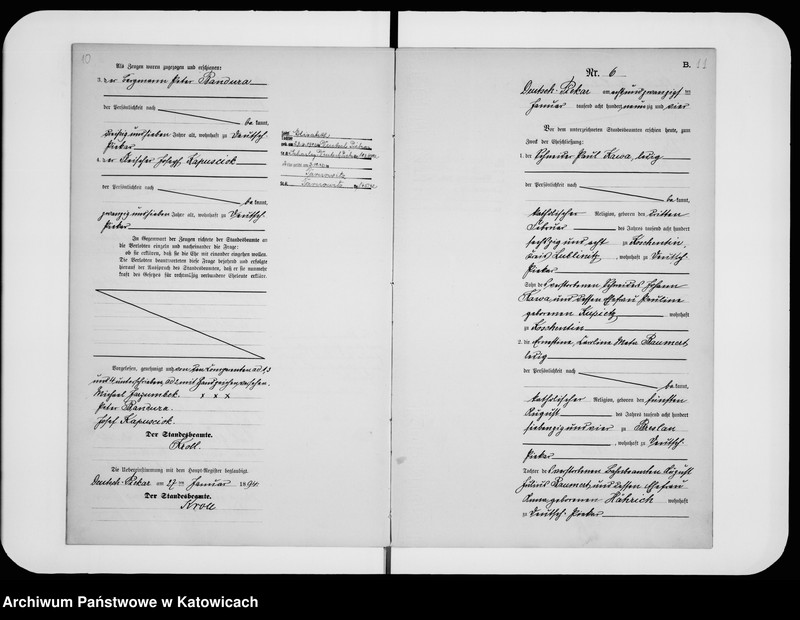 10
Als Zeugen waren zugezogen und erschienen:
3. der Bergmann Peter Bandura
der Persönlichkeit nach
be kannt,
dreißig und sieben Jahre alt, wohnhaft zu Deutsch-
Piekar
4. der Häusler Josef Kapusciok
der Persönlichkeit nach
be kannt,
zwanzig und sieben Jahre alt, wohnhaft zu Deutsch-
Piekar
In Gegenwart der Zeugen richtete der Standesbeamte an
die Verlobten einzeln und nacheinander die Frage:
ob sie erklären, daß sie die Ehe mit einander eingehen wollen.
Die Verlobten beantworteten diese Frage bejahend und erfolgte
hierauf der Ausspruch des Standesbeamten, daß er sie nunmehr
kraft des Gesetzes für rechtmäßig verbundene Eheleute erkläre.
Vorgelesen, genehmigt und von den Komparenten ad 1, 3
und 4 unterschrieben, ad 2 mit Handzeichen versehen.
Michael x x x
Peter Bandura.
Josef Kapusciok.
Der Standesbeamte.
Kroll.
Die Uebereinstimmung mit dem Haupt-Register beglaubigt.
Deutsch-Piekar am 27ten Januar 1894.
Der Standesbeamte.
Kroll
Elisabeth
Tarnowitz
B. 11
Nr. 6
Deutsch-Piekar am acht und zwanzigsten
Januar tausend acht hundert neunzig und vier
Vor dem unterzeichneten Standesbeamten erschienen heute, zum
Zweck der Eheschließung:
1. der Schneider Paul Kawa, ledig
der Persönlichkeit nach
be kannt,
katholischer Religion, geboren den dritten
Februar des Jahres tausend acht hundert
sechszig und acht zu Koschentin,
Kreis Lublinitz, wohnhaft zu Deutsch-
Piekar
Sohn des verstorbenen Schneiders Johann
Kawa, und dessen Ehefrau Pauline
geborenen Kupietz wohnhaft
zu Koschentin
2. die Ernestine, Karoline Meta Baumert,
ledig
der Persönlichkeit nach
be kannt,
katholischer Religion, geboren den fünften
August des Jahres tausend acht hundert
siebenzig und vier zu Breslau
, wohnhaft zu Deutsch-
Piekar
Tochter des verstorbenen August
Julius Baumert, und dessen Ehefrau
Anna geborenen Hährich wohnhaft
zu Deutsch-Piekar
Archiwum Państwowe w Katowicach